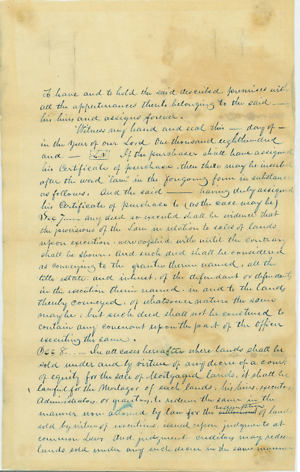 To have and to hold the said described premises with
all the appurtenances thereto belonging to the said —
his heirs and assigns forever.
Witness my hand and seal this — day of —
in the year of our Lord One thousand eight hundred
and — If the purchaser shall have assigned
his Certificate of purchase, then there may be inserted
after the word "law" in the foregoing form in substance
as follows. And the said — having duly assigned
his Certificate of purchase to (as the case may be)
Sec 7 — any deed so executed shall be evidence that
the provisions of the Law in relation to sales of lands
upon execution were complied with until the contrary
shall be shown. And such deed shall be considered
as conveying to the grantee therein named, all the
title estate and interest of the defendant or defendants
in the execution therein named, in and to the lands
thereby conveyed, of whatsoever nature the same
may be, but such deed shall not be construed to
contain any covenant upon the part of the officer
executing the same.
Sec 8. — In all cases hereafter where lands shall be
sold under and by virtue of any decree of a court
of equity for the sale of Mortgaged lands, it shall be
lawful for the Mortgagor of such lands, his heirs, executors,
Administrators or grantees, to redeem the same in the
manner now allowed by law for the redemption of land
sold by virtue of executions issued upon judgments at
common Law. And judgment creditors may redeem
lands sold under any such decree in the same manner